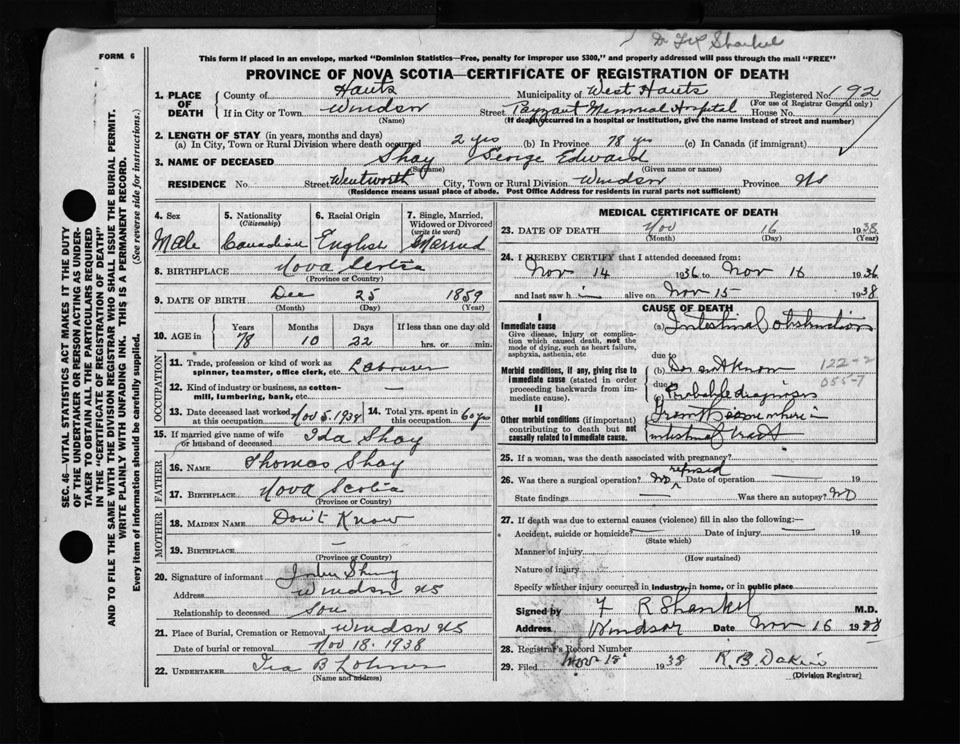 Dr F R Shankel
FORM 6
This form if placed in an envelope, marked "Dominion Statistics—Free, penalty for improper use $300," and properly addressed will pass through the mail "FREE"
PROVINCE OF NOVA SCOTIA—CERTIFICATE OF REGISTRATION OF DEATH
1. PLACE OF DEATH
County of Hants Municipality of West Hants Registered No. 192
(For use of Registrar General only)
If in City or Town Windsor Street Payzant Memorial Hospital House No.
(Name) (If death occurred in a hospital or institution, give the name instead of street and number)
2. LENGTH OF STAY (in years, months and days)
(a) In City, Town or Rural Division where death occurred 2 yrs (b) In Province 78 yrs (c) In Canada (if immigrant)
3. NAME OF DECEASED Shay George Edward
(Surname) (Given name or names)
RESIDENCE No. Street Wentworth City, Town or Rural Division Windsor Province NS
(Residence means usual place of abode. Post Office Address for residents in rural parts not sufficient)
SEC. 46—VITAL STATISTICS ACT MAKES IT THE DUTY
OF THE UNDERTAKER OR PERSON ACTING AS UNDER-
TAKER TO OBTAIN ALL THE PARTICULARS REQUIRED
IN THE "CERTIFICATE OF REGISTRATION OF DEATH"
AND TO FILE THE SAME WITH THE DIVISION REGISTRAR WHO SHALL ISSUE THE BURIAL PERMIT.
WRITE PLAINLY WITH UNFADING INK. THIS IS A PERMANENT RECORD.
Every item of information should be carefully supplied. (See reverse side for instructions.)
4. Sex Male
5. Nationality (Citizenship) Canadian
6. Racial Origin English
7. Single, Married, Widowed or Divorced (write the word) Married
8. BIRTHPLACE Nova Scotia
(Province or Country)
9. DATE OF BIRTH Dec 25 1859
(Month) (Day) (Year)
10. AGE in Years 78 Months 10 Days 22 If less than one day old hrs. or min.
OCCUPATION
11. Trade, profession or kind of work as spinner, teamster, office clerk, etc. Labourer
12. Kind of industry or business, as cotton-mill, lumbering, bank, etc. —
13. Date deceased last worked at this occupation Nov 5, 1934
14. Total yrs. spent in this occupation 60 yrs
15. If married give name of wife or husband of deceased Ida Shay
FATHER
16. NAME Thomas Shay
17. BIRTHPLACE Nova Scotia
(Province or Country)
MOTHER
18. MAIDEN NAME Don't Know
19. BIRTHPLACE —
(Province or Country)
20. Signature of informant Shay
Address Windsor NS
Relationship to deceased Son
21. Place of Burial, Cremation or Removal Windsor NS
Date of burial or removal Nov 18. 1938
22. UNDERTAKER Ira B
(Name and address)
MEDICAL CERTIFICATE OF DEATH
23. DATE OF DEATH Nov 16 1938
(Month) (Day) (Year)
24. I HEREBY CERTIFY that I attended deceased from:
Nov 14 1936 to Nov 16 1936
and last saw him alive on Nov 15 1938
CAUSE OF DEATH
I
Immediate cause (a) Intestinal obstruction
Give disease, injury or complication which caused death, not the mode of dying, such as heart failure, asphyxia, asthenia, etc
due to
Morbid conditions, if any, giving rise to immediate cause (stated in order proceeding backwards from immediate cause). (b) Does not Know 122-2
055-7
due to
(c) Probable diagnosis
II
Other morbid conditions (if important) contributing to death but not causally related to immediate cause.
somewhere
intestinal tract
25. If a woman, was the death associated with pregnancy?
26. Was there a surgical operation? No refused Date of operation — 19
State findings — Was there an autopsy? No
27. If death was due to external causes (violence) fill in also the following:—
Accident, suicide or homicide — Date of injury — 19
(State which)
Manner of injury
(How sustained)
Nature of injury
Specify whether injury occurred in industry, in home, or in public place
Signed by F R Shankel M.D.
Address Windsor Date Nov 16 1938
28. Registrar's Record Number
29. Filed Nov 18 1938 R. B. Dakin
(Division Registrar)